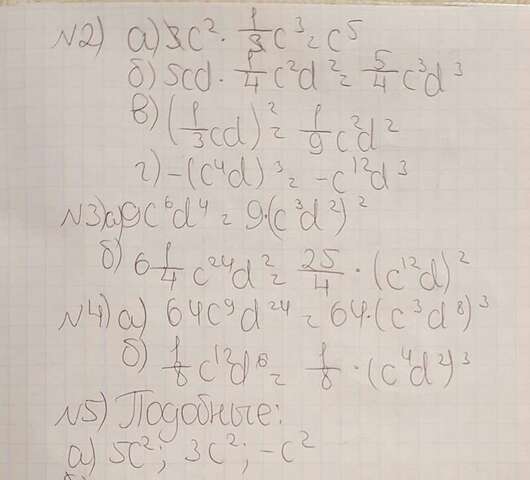 N2) а) 3c² · 1/3 c³ = c⁵
б) 5cd · 1/4 c²d² = 5/4 c³d³
в) (1/3 cd)² = 1/9 c²d²
г) -(c⁴d)³ = -c¹²d³
N3) а) 9c⁶d⁴ = 9·(c³d²)²
б) 6 1/4 c²⁴d² = 25/4 · (c¹²d)²
N4) а) 64c⁹d²⁴ = 64·(c³d⁸)³
б) 1/8 c¹²d⁶ = 1/8 · (c⁴d²)³
N5) Подобные:
а) 5c²; 3c²; -c²